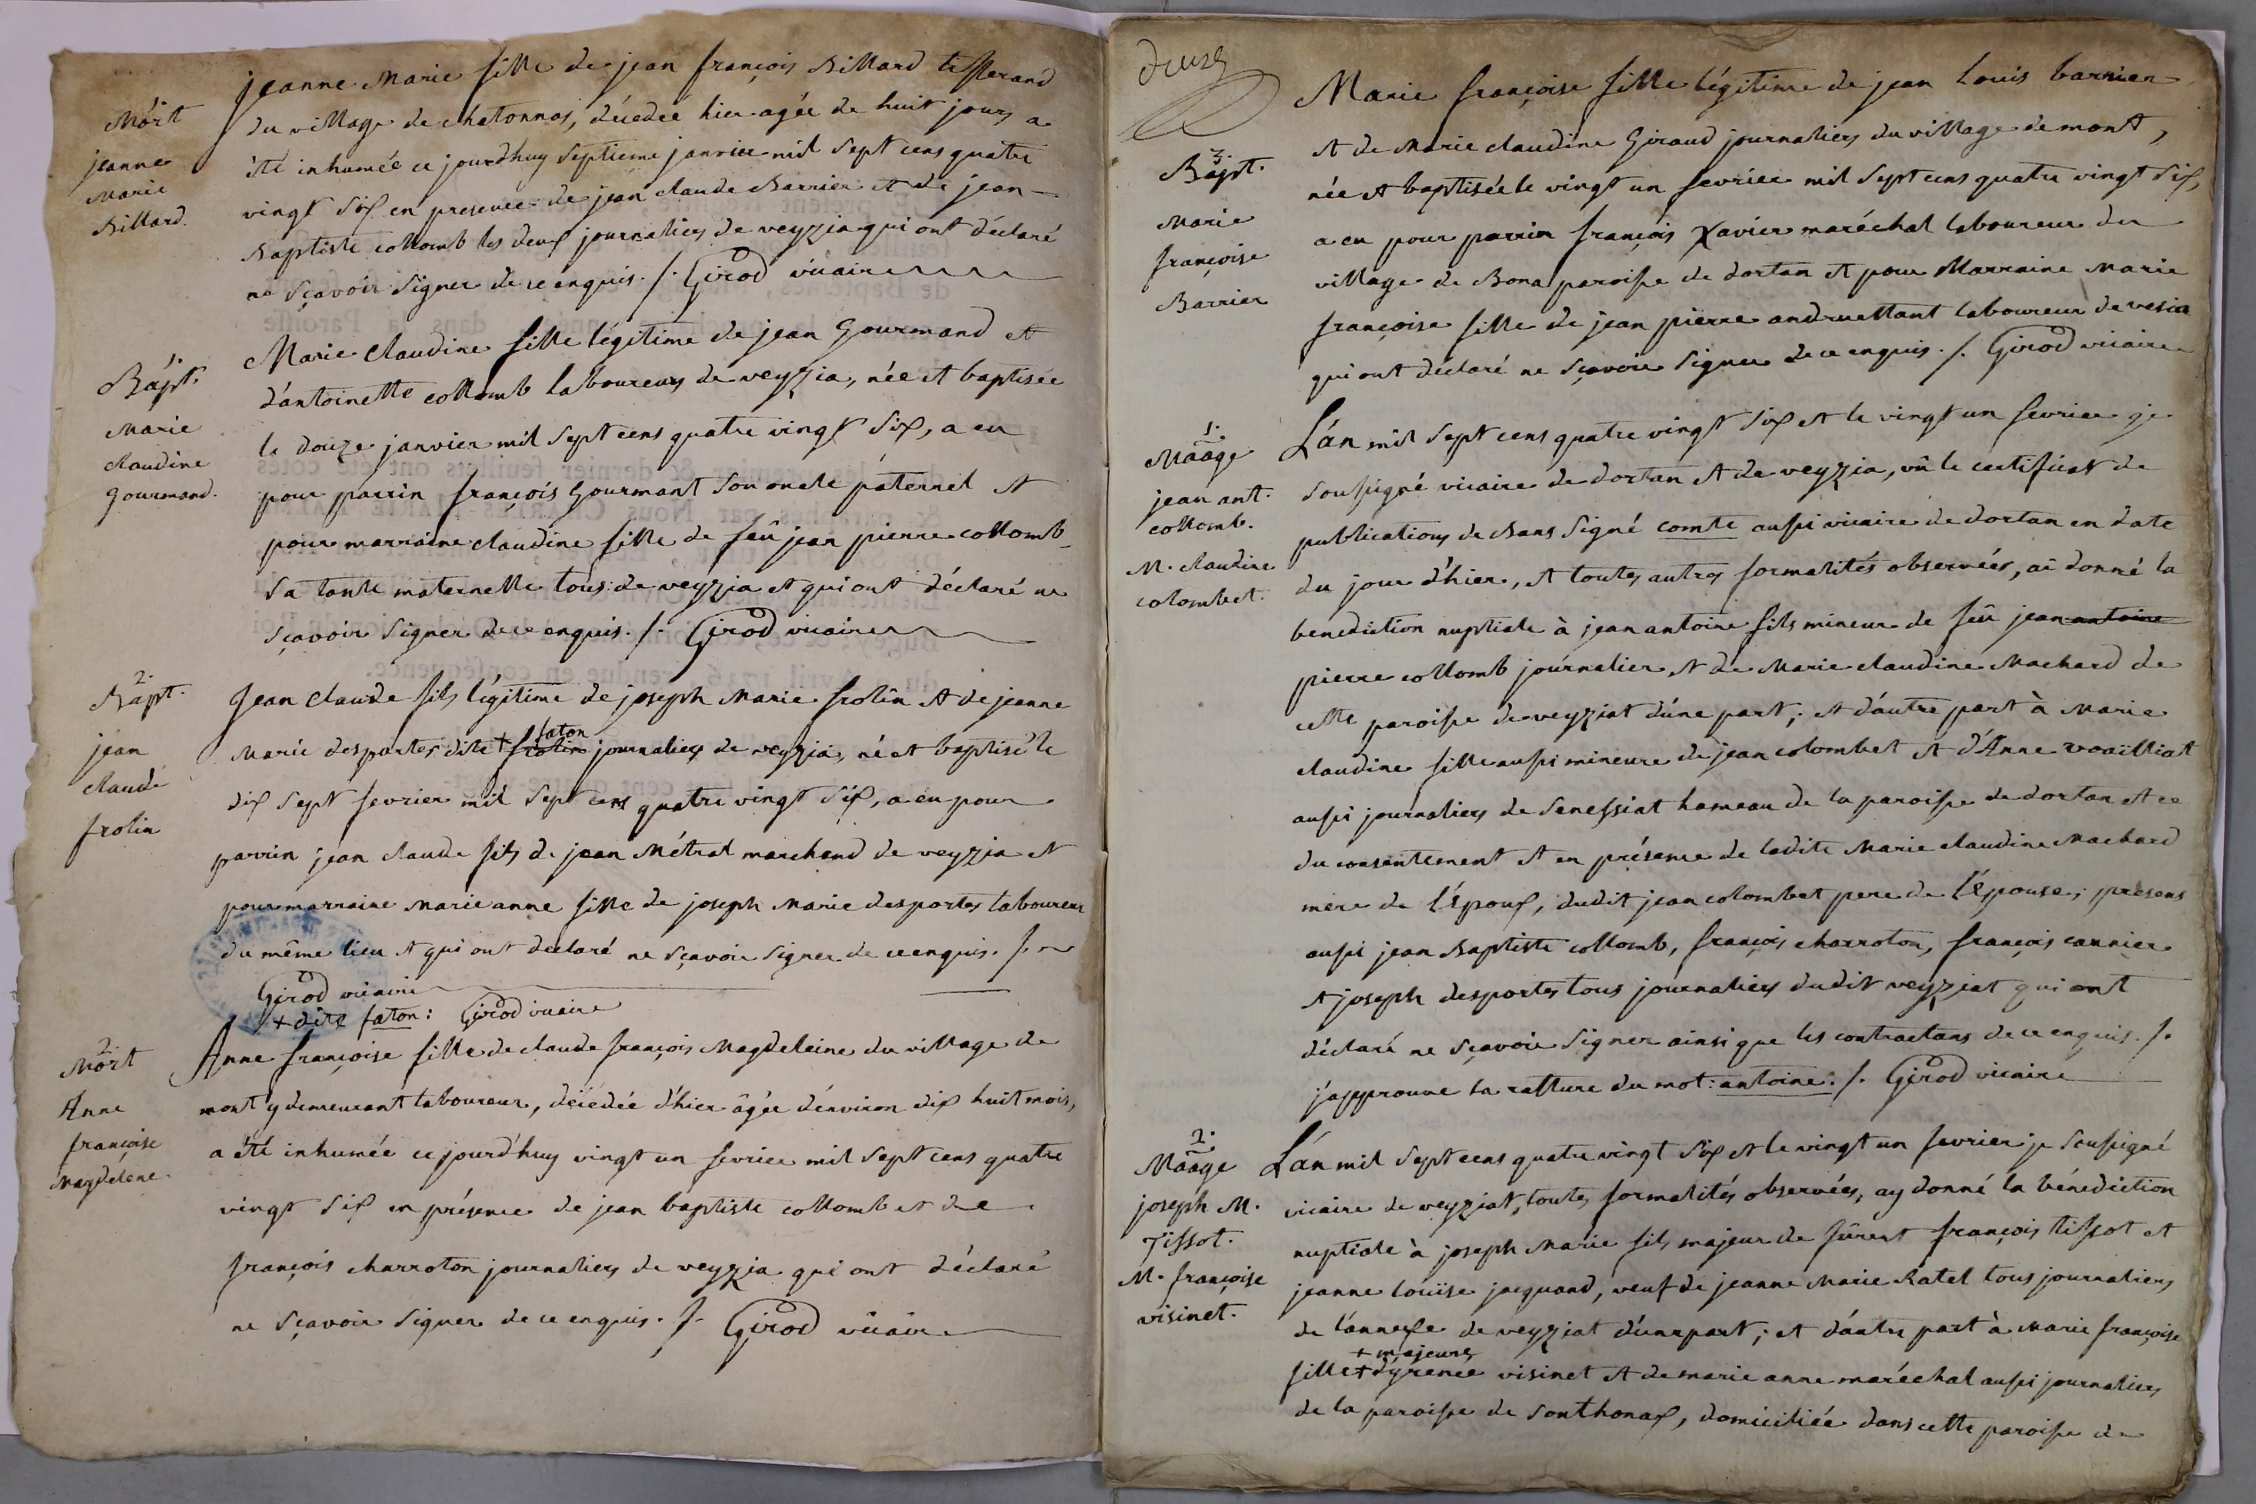 1.
Mort
jeanne
Marie
Billard.
jeanne Marie fille de jean françois Billard tisserand
du village de chatonnas, décedée hier agée de huit jours a
été inhumée ce jourd'huy septieme janvier mil sept cens quatre
vingt six en presence de jean claude Barrier et de jean-
Baptiste collomb les deux journaliers de veyzia qui ont déclaré
ne sçavoir signer de ce enquis ./. Girod vicaire
1.
Bapt.
Marie
claudine
gourmand.
Marie claudine fille légitime de jean Gourmand et
d'antoinette collomb laboureurs de veyzia, née et baptisée
le douze janvier mil sept cens quatre vingt six, a eu
pour parrin françois Gourmant son oncle paternel et
pour marraine claudine fille de feû jean pierre collomb
sa tante maternelle tous de veyzia et qui ont déclaré ne
sçavoir signer de ce enquis ./. Girod vicaire
2.
Bapt.
jean
claude
frolin
Jean claude fils légitime de joseph Marie frolin et de jeanne
faton
Marie desportes dite + frolin journaliers de veyzia, né et baptisé le
dix sept fevrier mil sept cens quatre vingt six, a eu pour
parrin jean claude fils de jean Métral marchand de veyzia et
pour marraine marie anne fille de joseph Marie desportes laboureur
du même lieu et qui ont declaré ne sçavoir signer de ce enquis ./.
Girod vicaire
+ dite faton : Girod vicaire
2.
Mort
Anne
françoise
Magdelene.
Anne françoise fille de claude françois Magdeleine du village de
mont y demeurant laboureur, décedée d'hier âgée d'environ dix huit mois,
a été inhumée ce jourd'huy vingt un fevrier mil sept cens quatre
vingt six en présence de jean baptiste collomb et de
françois charroton journaliers de veyzia qui ont déclaré
ne sçavoir signer de ce enquis ./. Girod vicaire
deuze
3.
Bapt.
Marie
françoise
Barrier
Marie françoise fille légitime de jean Louis barrier
et de Marie claudine Giraud journaliers du village de mont,
née et baptisée le vingt un fevrier mil sept cens quatre vingt six,
a eu pour parrin françois Xavier maréchal laboureur du
village de Bona paroisse de dortan et pour Marraine Marie
françoise fille de jean pierre andruettant laboureur de vesia
qui ont déclaré ne sçavoir signer de ce enquis ./. Girod vicaire
1.
Maage
jean ant.
collomb.
M. claudine
colombet.
L'an mil sept cens quatre vingt six et le vingt un fevrier je
soussigné vicaire de dortan et de veyzia, vû le certificat de
publications de Bans signé comte aussi vicaire de dortan en date
du jour d'hier, et toutes autres formalités observées, ai donné la
benediction nuptiale à jean antoine fils mineur de feû jean antoine
pierre collomb journalier et de Marie claudine Machard de
cette paroisse de veyziat d'une part; et d'autre part à Marie
claudine fille aussi mineure de jean colombet et d'Anne vvaïlliat
aussi journaliers de senessiat hameau de la paroisse de dortan et ce
du consentement et en présence de ladite Marie claudine Machard
mere de l'époux, dudit jean colombet pere de l'épouse; présens
aussi jean Baptiste collomb, françois charroton, françois carrier
et joseph desportes tous journaliers dudit veyziat qui ont
déclaré ne sçavoir signer ainsi que les contractans de ce enquis ./.
j'approuve la ratture du mot: antoine ./. Girod vicaire
2.
Maage
joseph M.
Tissot.
M. françoise
visinet.
L'an mil sept cens quatre vingt six et le vingt un fevrier je soussigné
vicaire de veyziat, toutes formalités observées, ay donné la bénédiction
nuptiale à joseph Marie fils majeur de fûrent françois tissot et
jeanne Louïse jacquand, veuf de jeanne Marie Ratel tous journaliers
de l'annexe de veyziat d'une part; et d'autre part à Marie françoise
+ majeure
fille + d'yrenée visinet et de marie anne maréchal aussi journaliers
de la paroisse de sonthonax, domiciliée dans cette paroisse de